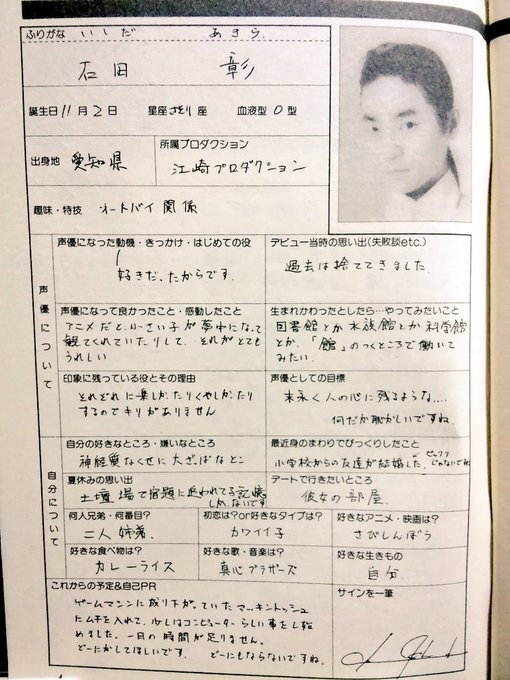 ふりがな いしだ あきら
石田 彰
誕生日 11月2日 星座 さそり座 血液型 O型
出身地 愛知県
所属プロダクション
江崎プロダクション
趣味・特技 オートバイ関係
声優について
声優になった動機・きっかけ・はじめての役
好きだったからです。
デビュー当時の思い出(失敗談etc.)
過去は捨ててきました
声優になって良かったこと・感動したこと
アニメだと小さい子が夢中になって
観てくれていたりして、それがとても
うれしい
生まれかわったとしたら…やってみたいこと
図書館とか水族館とか科学館
とか、「館」のつくところで働いて
みたい。
印象に残っている役とその理由
それぞれに楽しかったりくやしかったり
するのでキリがありません
声優としての目標
末永く人の心に残るような....
何だか恥かしいですね。
自分について
自分の好きなところ・嫌いなところ
神経質なくせに大ざっぱなとこ
最近身のまわりでびっくりしたこと
小学校からの友達が結婚した。ビックリじゃないでしょ
夏休みの思い出
土壇場で宿題に追われてる記憶
しかないです
デートで行きたいところ
彼女の部屋
何人兄弟・何番目?
二人姉弟
初恋は?or好きなタイプは?
カワイイ子
好きなアニメ・映画は?
さびしんぼう
好きな食べ物は?
カレーライス
好きな歌・音楽は?
真心ブラザーズ
好きな生きもの
自分
これからの予定&自己PR
ゲームマシンに成り下がっていたマッキントッシュ
にムチを入れて、少しはコンピューターらしい事をし始
めました。一日の時間が足りません。
どーにかしてほしいです。 どーにもならないですね。
サインを一筆